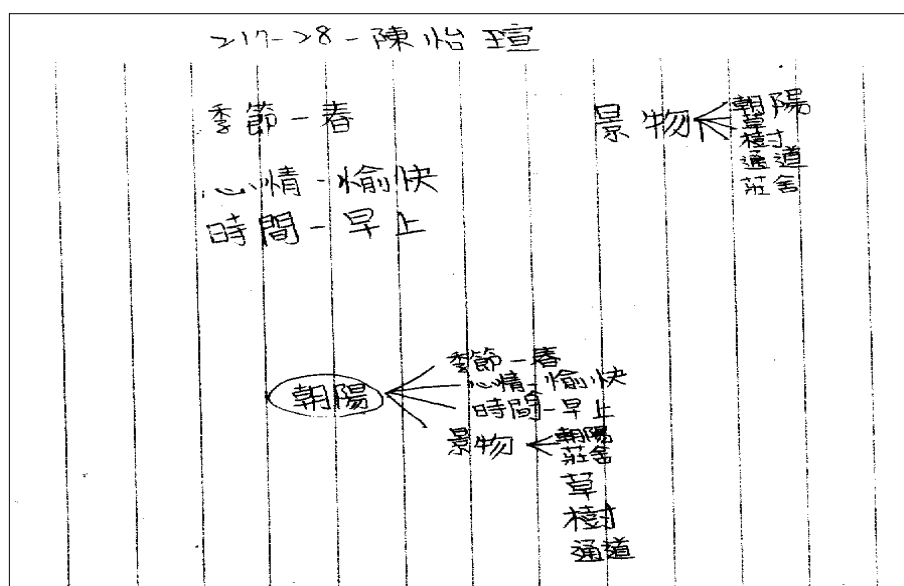 217-28-陳怡瑄
季節-春
心情-愉快
時間-早上
景物
朝陽
草
樹
通道
莊舍
朝陽
季節-春
心情-愉快
時間-早上
景物
朝陽
莊舍
草
樹
通道